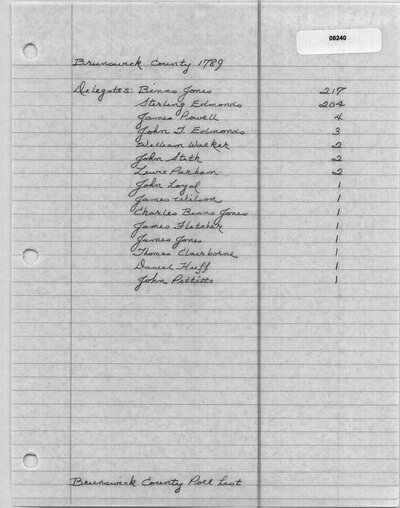 08240
Brunswick County 1789
Delegates: Benns Jones 217
Sterling Edmonds 204
James Powell 4
John T. Edmonds 3
William Walker 2
John Stith 2
Lewis Parham 2
John Loyal 1
James Wilson 1
Charles Benns Jones 1
James Fletcher 1
James Jones 1
Thomas Clairborne 1
Daniel Huff 1
John Pettitts 1
Brunswick County Poll List